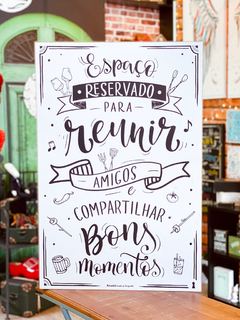 Espaço
RESERVADO
PARA
reunir
AMIGOS
e
COMPARTILHAR
Bons
momentos